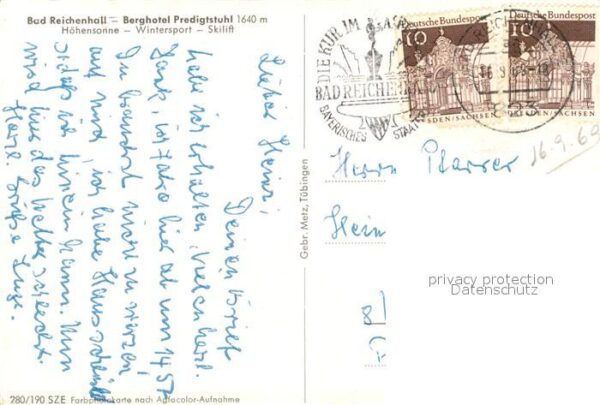 Bad Reichenhall — Berghotel Predigtstuhl 1640 m
Höhensonne — Wintersport — Skilift
Lieber Heinz,
Deinen Brief
habe ich erhalten. Vielen herzl.
Dank, ich fahre hier ab um 14,52
Du brauchst nicht zu warten
auf mich, ich habe Hausschlüssel
sodass ich hinein kann. Nun
wird hier das Wetter schlecht.
Herzl. Grüße
Gebr. Metz, Tübingen
280/190 SZE Farbphotokarte nach Agfacolor-Aufnahme
DIE KUR IM
BAD REICHENHALL
BAYERISCHES STAATS
Deutsche Bundespost
10
DRESDEN/SACHSEN
Deutsche Bundespost
10
DRESDEN/SACHSEN
16.9.69
Herrn Pfarrer
Hein
privacy protection
Datenschutz